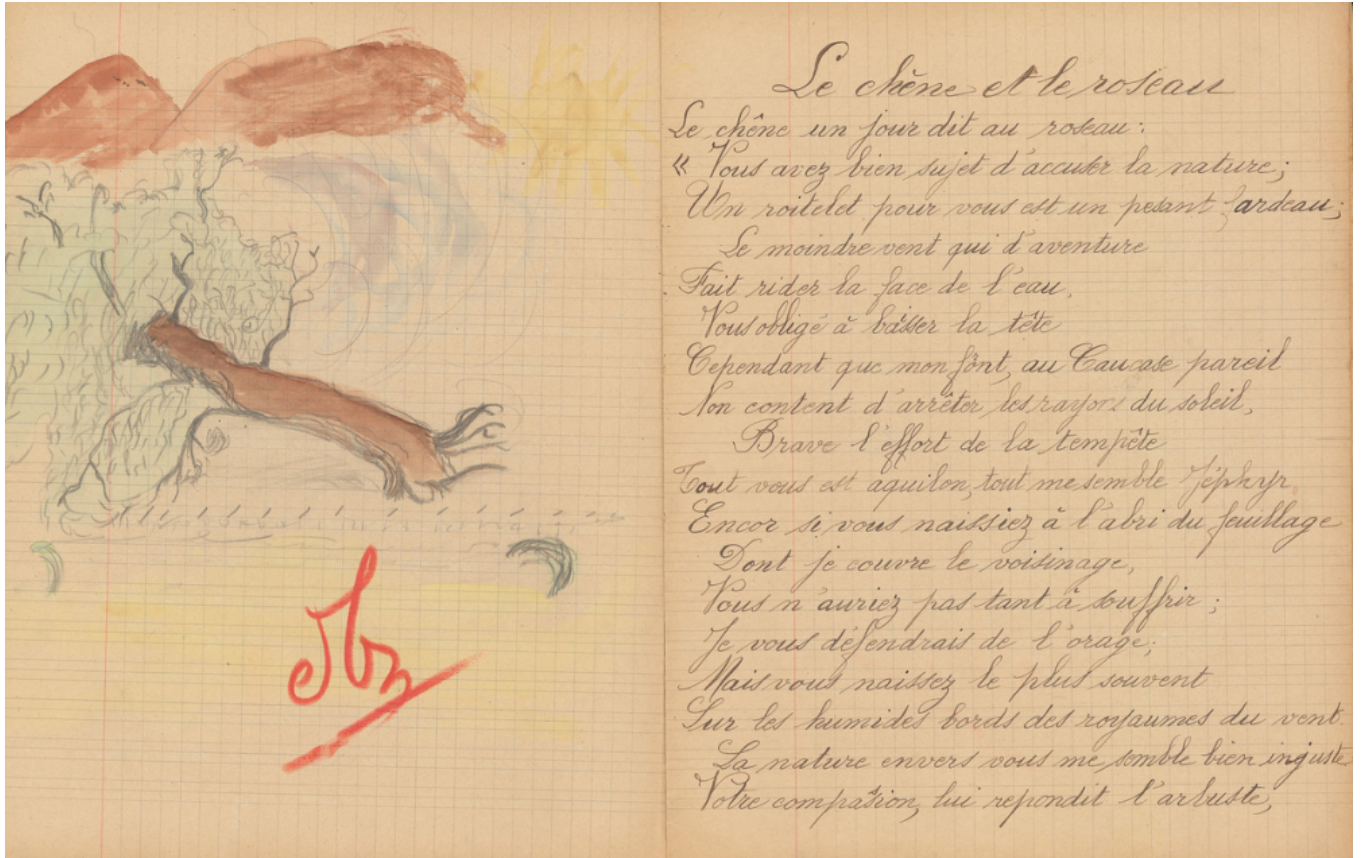 Le chêne et le roseau
Le chêne un jour dit au roseau :
« Vous avez bien sujet d'accuser la nature ;
Un roitelet pour vous est un pesant fardeau ;
Le moindre vent qui d'aventure
Fait rider la face de l'eau,
Vous obligé à baîsser la tête
Cependant que mon fônt, au Caucase pareil
Non content d'arrêter les rayons du soleil,
Brave l'effort de la tempête
Tout vous est aquilon, tout me semble Zéphyr
Encor si vous naissiez à l'abri du feuillage
Dont je couvre le voisinage,
Vous n'auriez pas tant à souffrir ;
Je vous défendrais de l'orage ;
Mais vous naissez le plus souvent
Sur les humides bords des royaumes du vent.
La nature envers vous me semble bien injuste
Votre compasion, lui repondit l'arbuste,